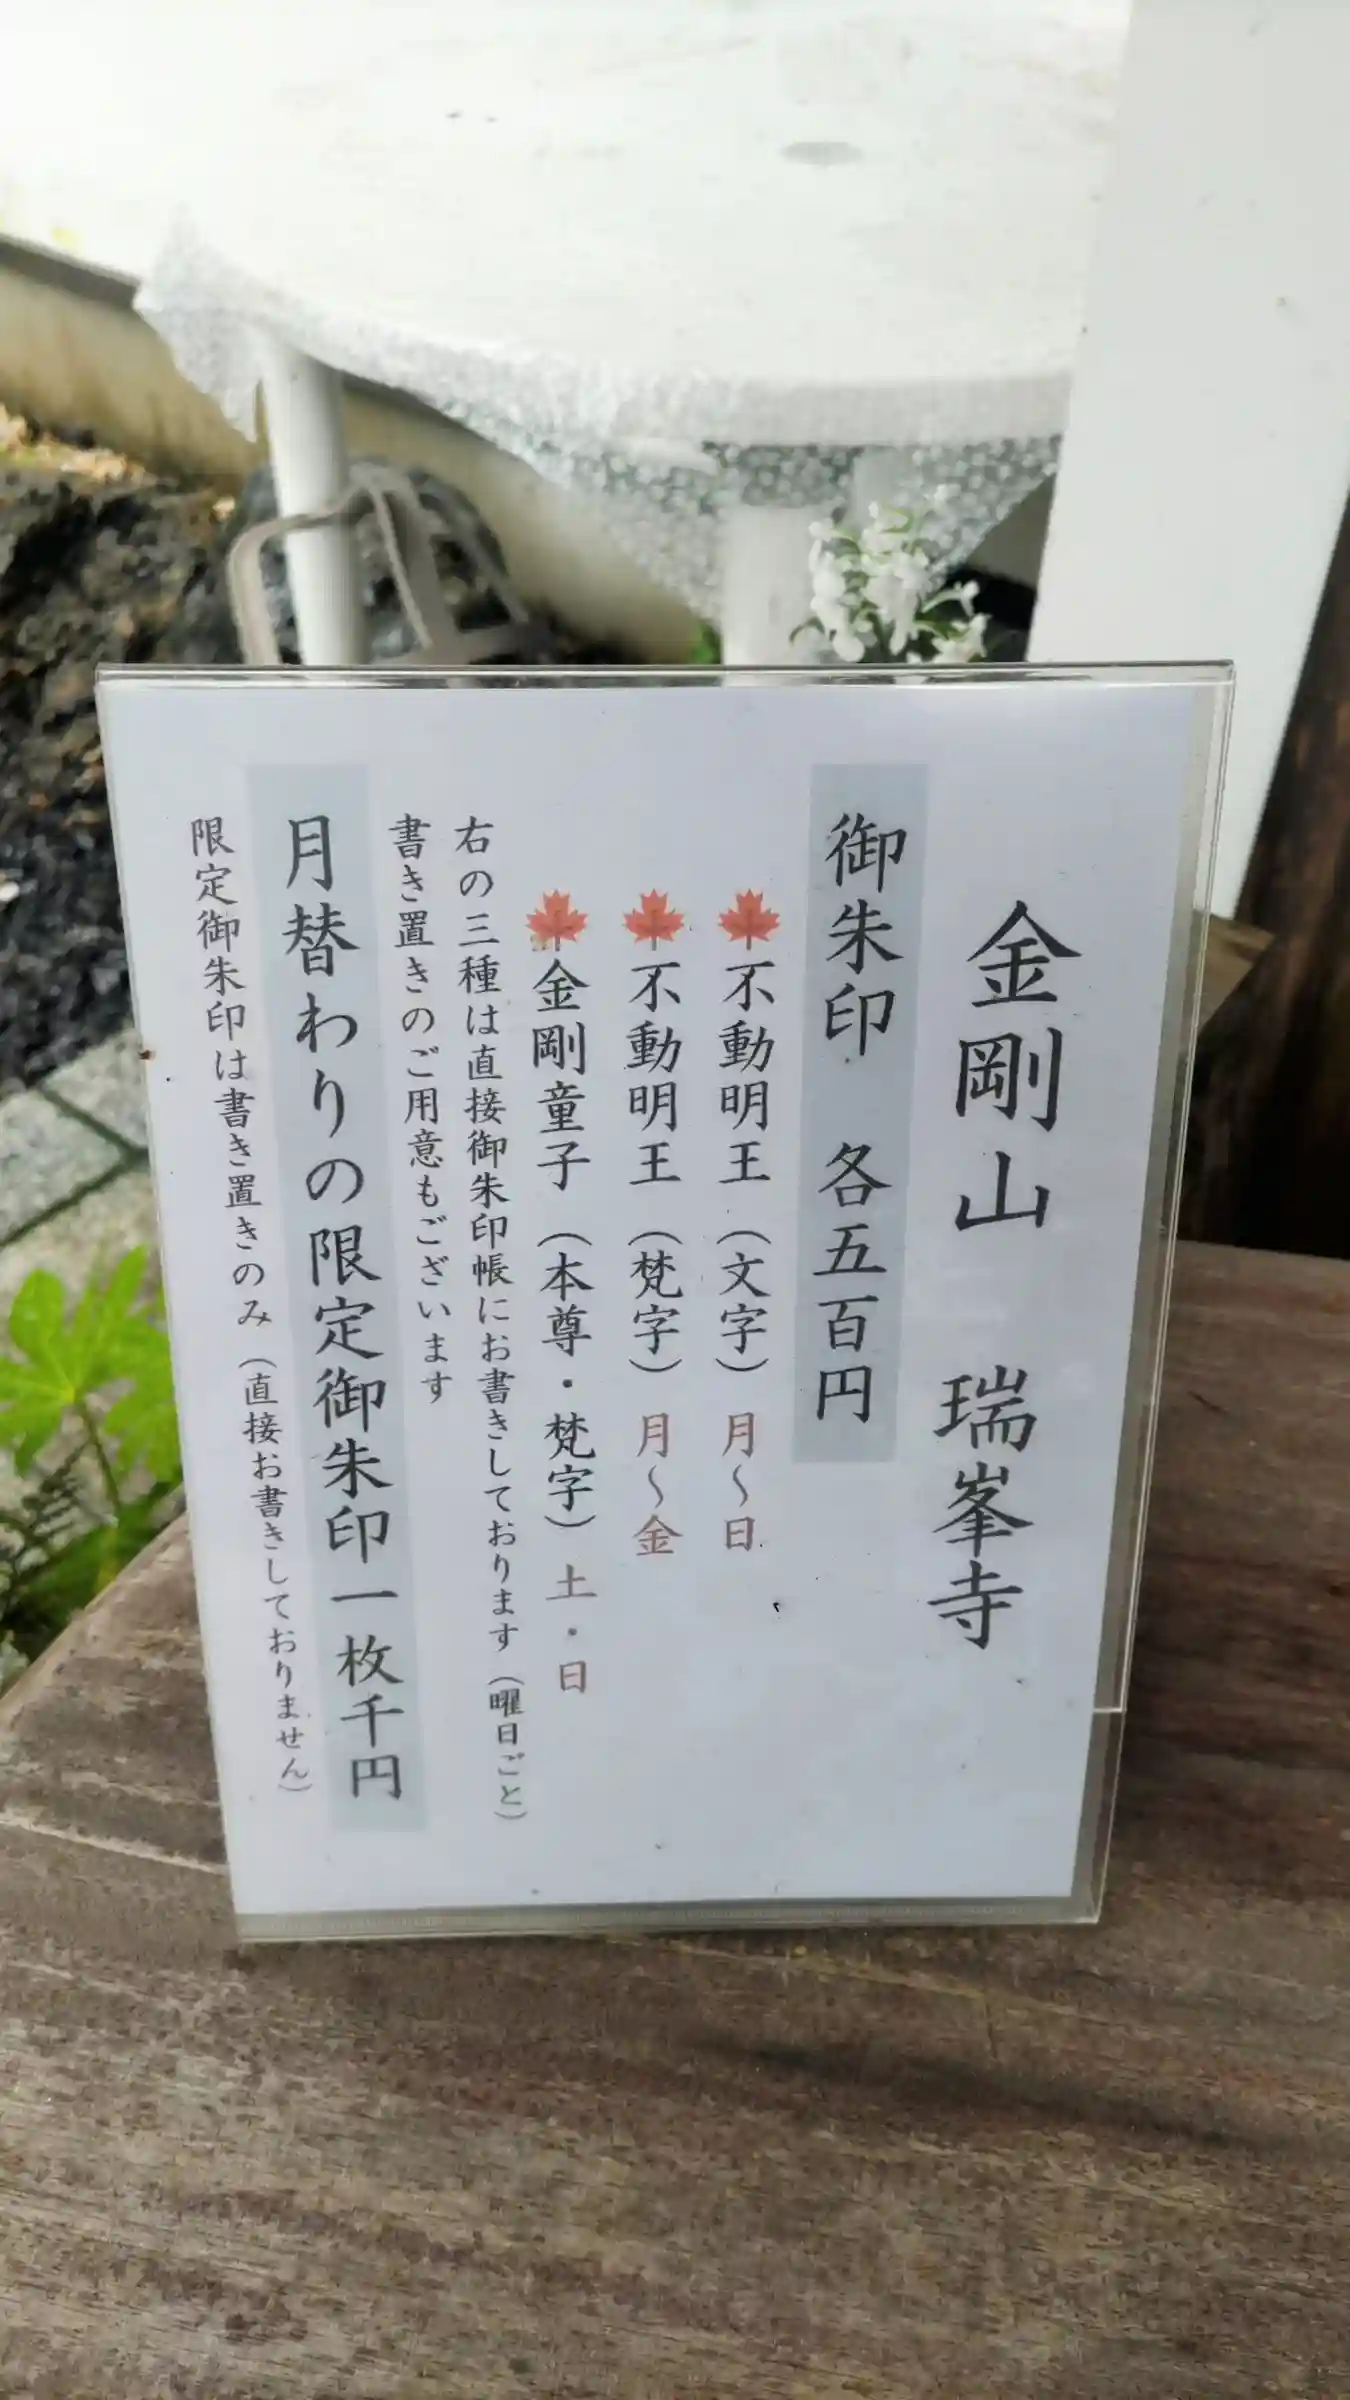 金剛山 瑞峯寺
御朱印 各五百円
不動明王（文字）月～日
不動明王（梵字）月～金
金剛童子（本尊・梵字）土・日
右の三種は直接御朱印帳にお書きしております（曜日ごと）
書き置きのご用意もございます
月替わりの限定御朱印一枚千円
限定御朱印は書き置きのみ（直接お書きしておりません）